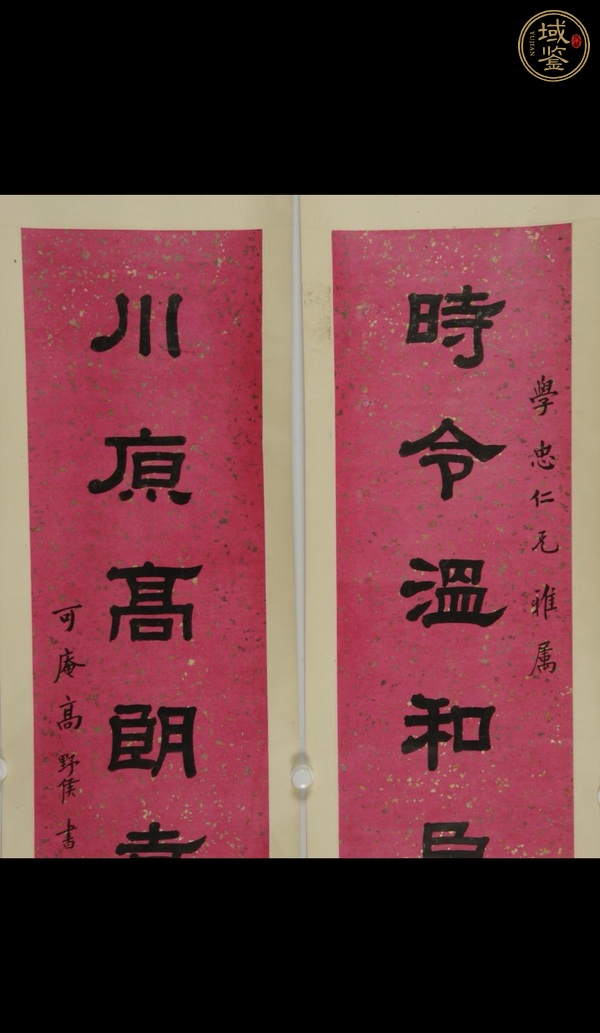 域鉴
YUJIAN
學忠仁兄雅属
時令溫和
川原高朗
可庵高野侯書